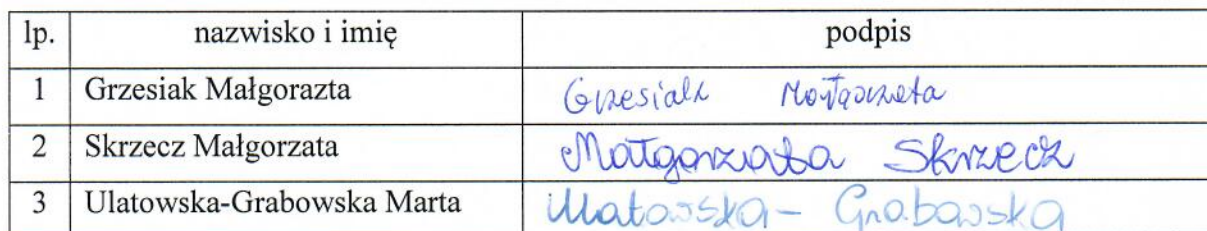 lp. nazwisko i imię podpis
1 Grzesiak Małgorazta Grzesiak Małgorzata
2 Skrzecz Małgorzata Małgorzata Skrzecz
3 Ulatowska-Grabowska Marta Ulatowska-Grabowska